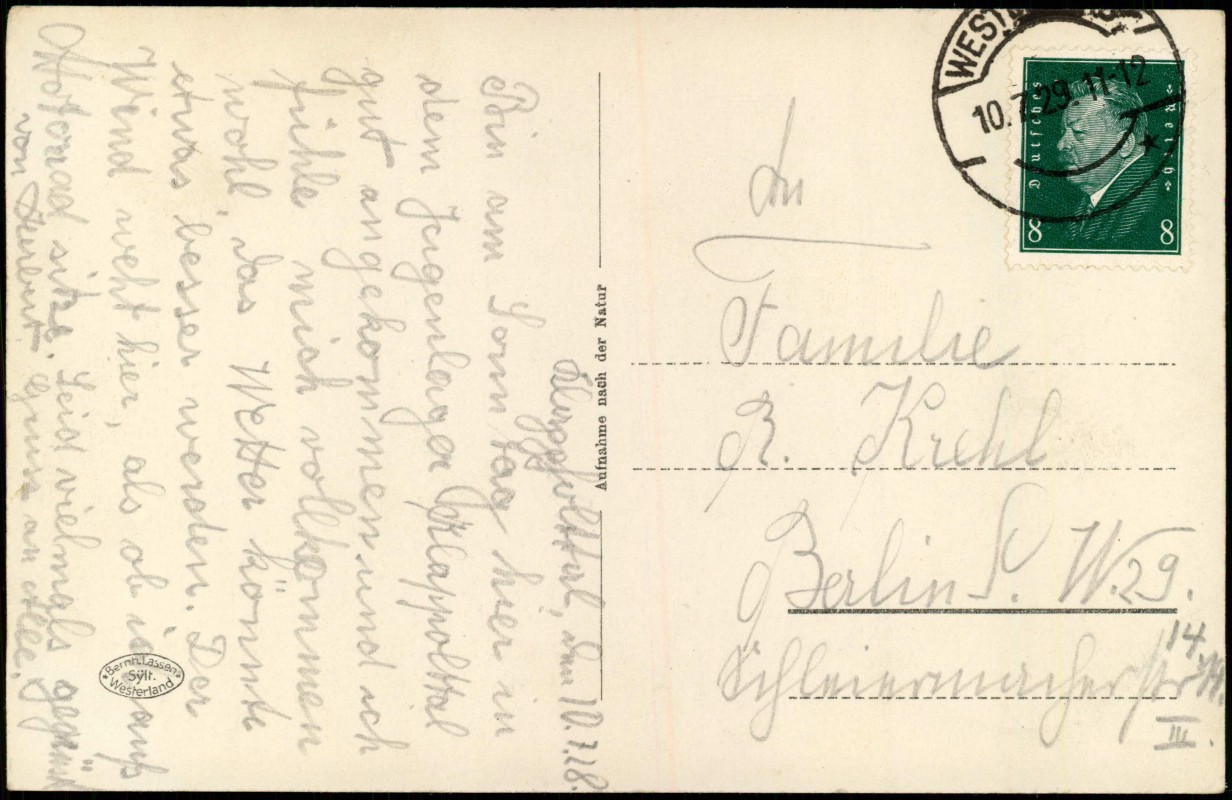 Klappholttal, den 10.7.28.
Bin am Sonntag hier in
dem Jugenlager Klappolttal
gut angekommen und ich
fühle mich vollkommen
wohl, das Wetter könnte
etwas besser werden. Der
Wind weht hier, als ob ich auf
Motorad sitze. Seid vielmals gegrüßt
von Herbert Gruss an alle.
Bernh. Lassen
Sylt.
Westerland
Aufnahme nach der Natur
WEST
10.7.29.11-12
Deutsches Reich
8 8
An
Familie
R. Krehl
Berlin S. W. 29.
Schleiermacherstr
14.
III.